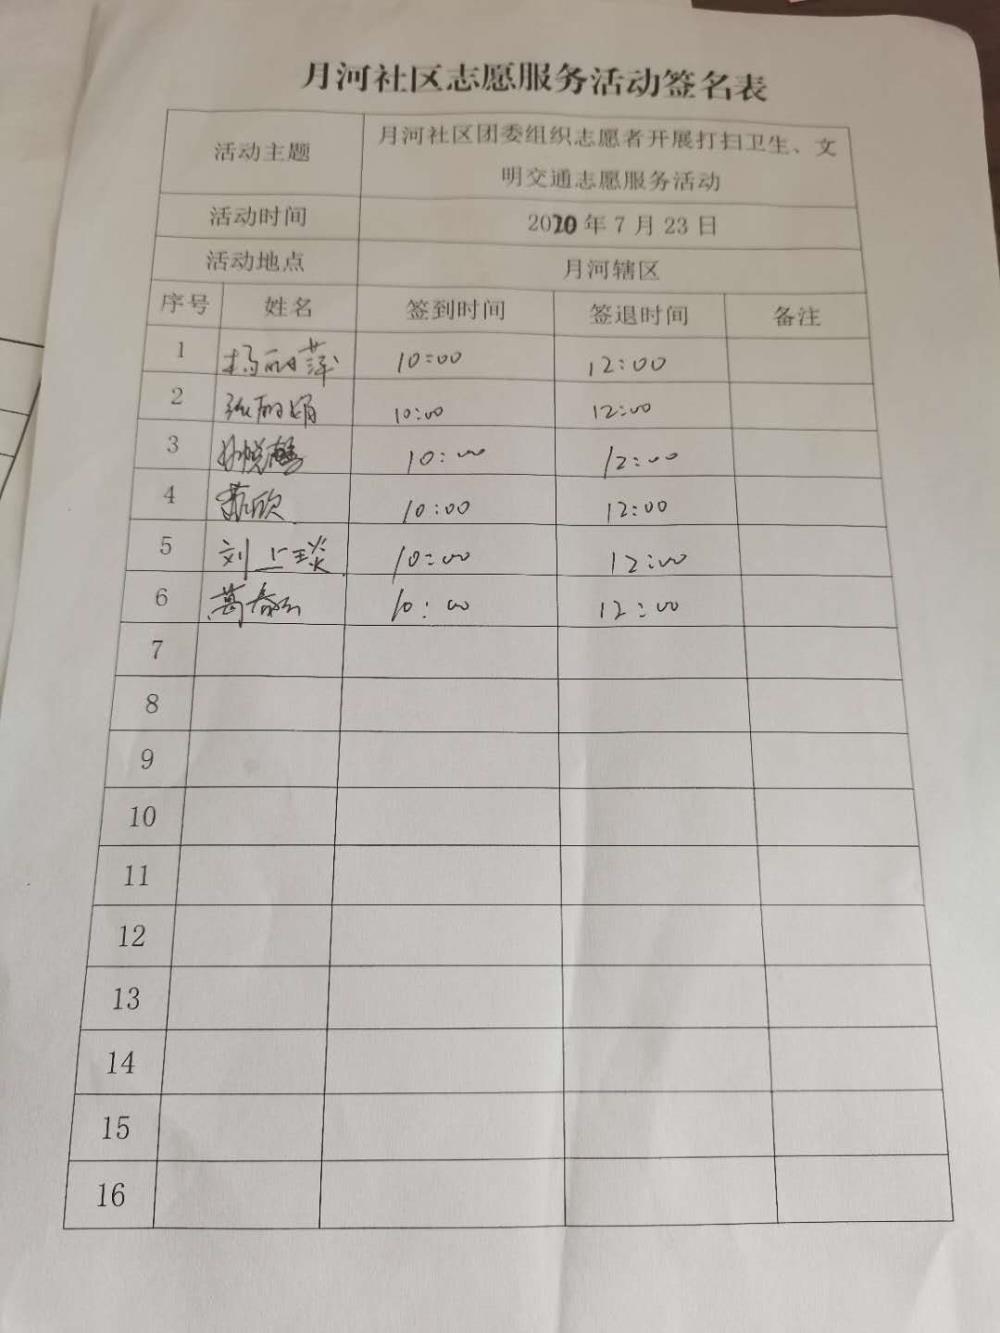 月河社区志愿服务活动签名表
活动主题
月河社区团委组织志愿者开展打扫卫生、文
明交通志愿服务活动
活动时间 2020年7月23日
活动地点 月河辖区
序号 姓名 签到时间 签退时间 备注
1 杨丽萍 10:00 12:00
2 张丽娟 10:00 12:00
3 10:00 12:00
4 10:00 12:00
5 刘上琰 10:00 12:00
6 10:00 12:00
7
8
9
10
11
12
13
14
15
16